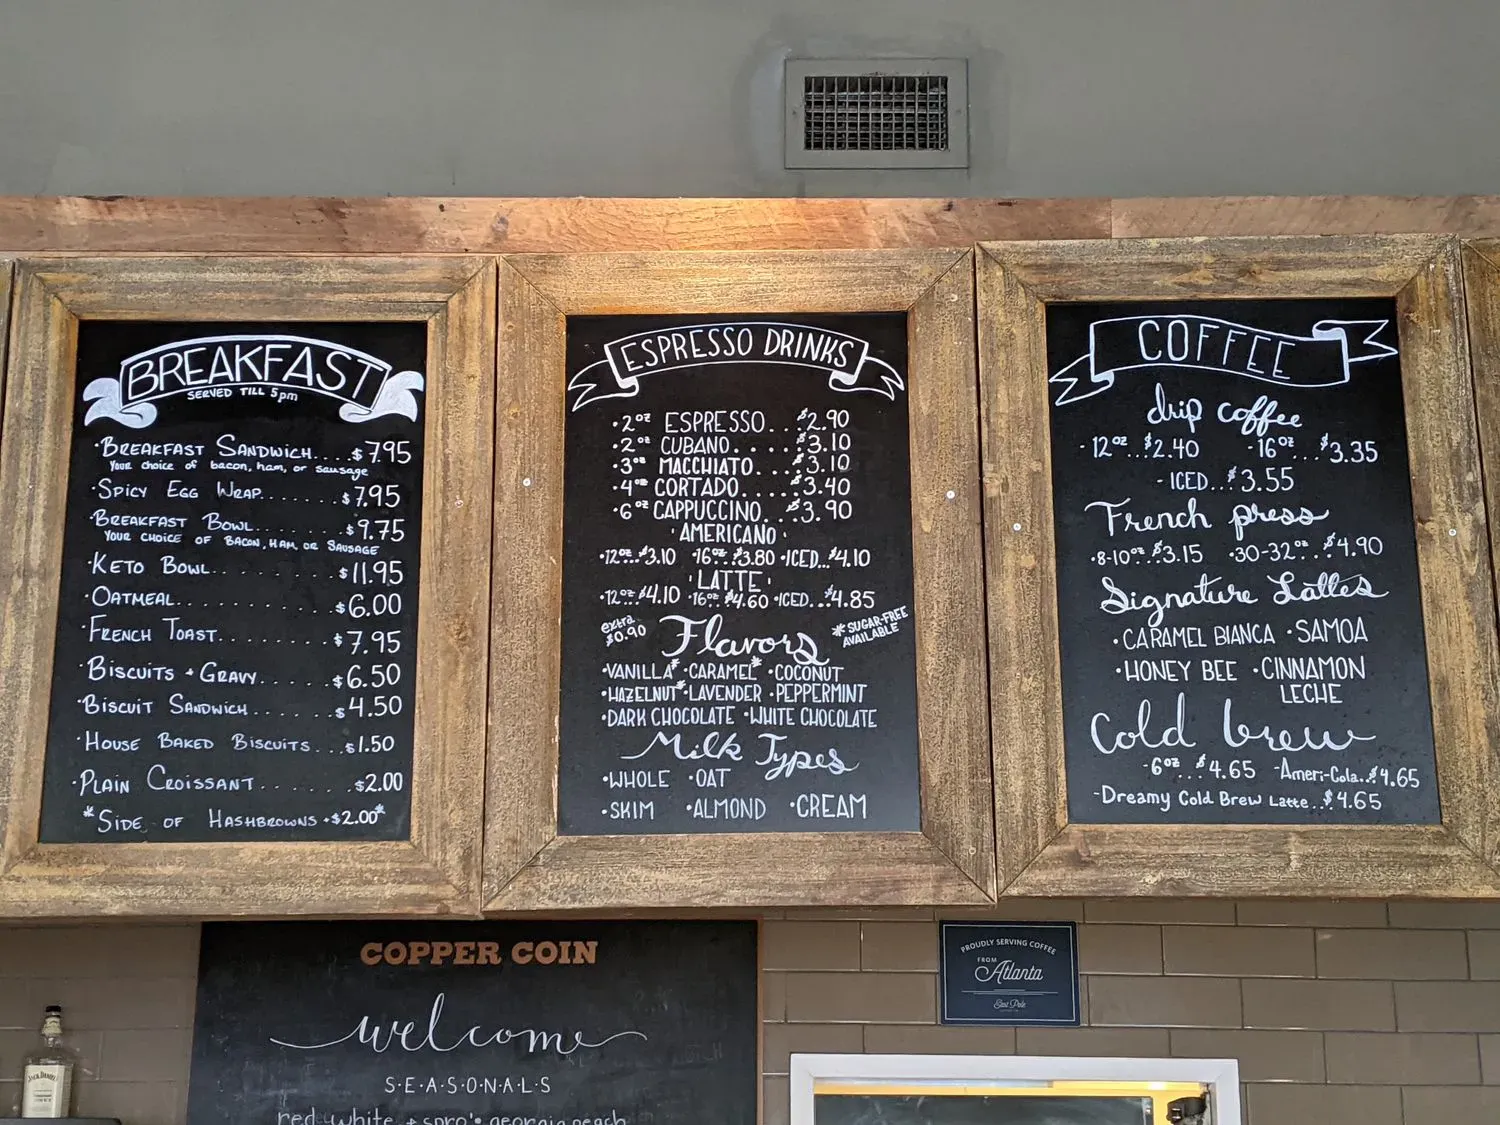 BREAKFAST
SERVED TILL 5pm
·BREAKFAST SANDWICH....$7.95
YOUR choice of bacon, ham, or sausage
·SPICY EGG WRAP.......$7.95
·BREAKFAST BOWL.......$9.75
YOUR CHOICE OF BACON, HAM, OR SAUSAGE
·KETO BOWL.........$11.95
·OATMEAL...........$6.00
·FRENCH TOAST........$7.95
·BISCUITS + GRAVY.....$6.50
·BISCUIT SANDWICH......$4.50
·HOUSE BAKED BISCUITS...$1.50
·PLAIN CROISSANT......$2.00
*SIDE OF HASHBROWNS·$2.00*
ESPRESSO DRINKS
·2oz ESPRESSO...$2.90
·2oz CUBANO.....$3.10
·3oz MACCHIATO....$3.10
·4oz CORTADO.....$3.40
·6oz CAPPUCCINO...$3.90
'AMERICANO'
·12oz...$3.10 ·16oz...$3.80 ·ICED...$4.10
'LATTE'
·12oz...$4.10 ·16oz...$4.60 ·ICED...$4.85
extra $0.90
Flavors
*SUGAR-FREE AVAILABLE
·VANILLA* ·CARAMEL* ·COCONUT
·HAZELNUT* ·LAVENDER ·PEPPERMINT
·DARK CHOCOLATE ·WHITE CHOCOLATE
Milk Types
·WHOLE ·OAT
·SKIM ·ALMOND ·CREAM
COFFEE
drip coffee
-12oz...$2.40 -16oz...$3.35
-ICED...$3.55
French press
·8-10oz..$3.15 ·30-32oz...$4.90
Signature Lattes
·CARAMEL BIANCA ·SAMOA
·HONEY BEE ·CINNAMON
LECHE
Cold brew
-6oz...$4.65 -Ameri-Cola..$4.65
-Dreamy Cold Brew Latte..$4.65
COPPER COIN
welcome
S·E·A·S·O·N·A·L·S
red, white + spro' · georgia peach
PROUDLY SERVING COFFEE
FROM
Atlanta
East Pole
JACK DANIEL'S